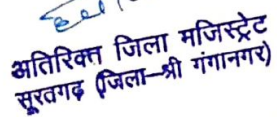 अतिरिक्त जिला मजिस्ट्रेट
सूरतगढ़ (जिला–श्री गंगानगर)